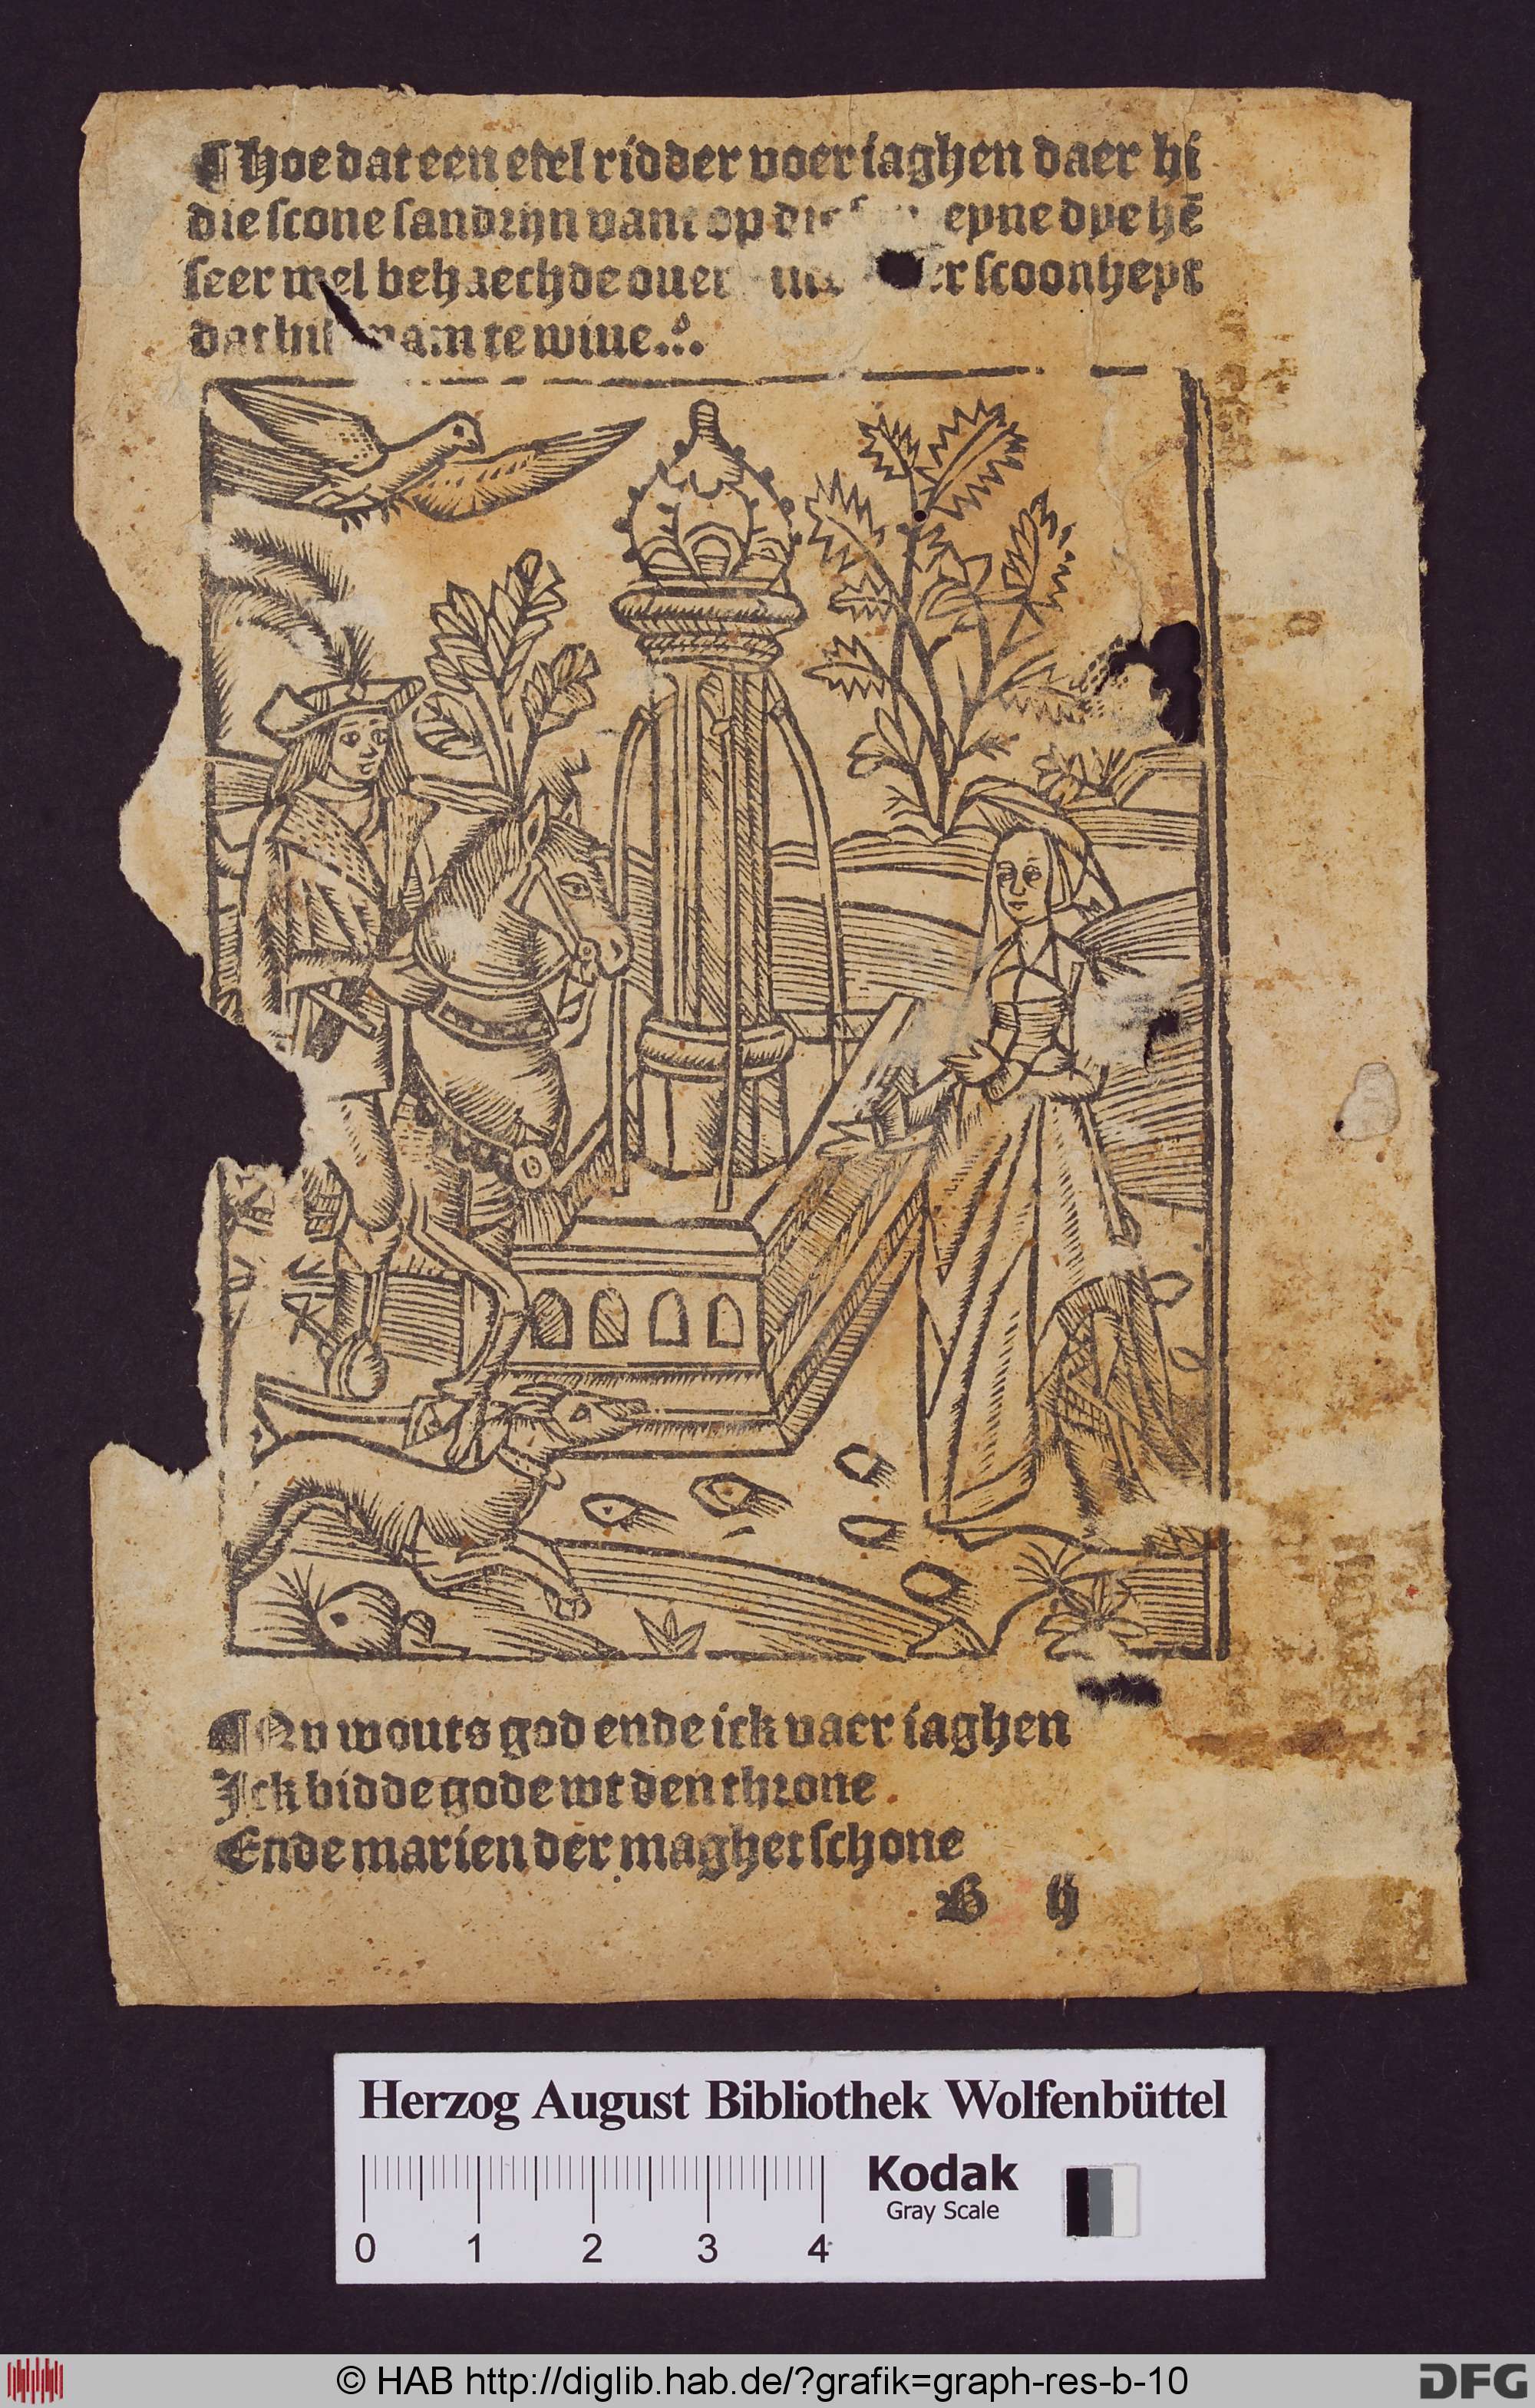 ¶ Hoe dat een edel ridder voer iaghen daer hi
die scone sandrijn vant op die eyne dye hē
seer wel behaechde ouer scoonheyt
dat hi nam te wiue
¶ Nv wouts god ende ick vaer iaghen
Ick bidde gode wt den throne
Ende marien der maghet schone
B ij
Herzog August Bibliothek Wolfenbüttel
Kodak
Gray Scale
0 1 2 3 4
© HAB http://diglib.hab.de/?grafik=graph-res-b-10
DFG